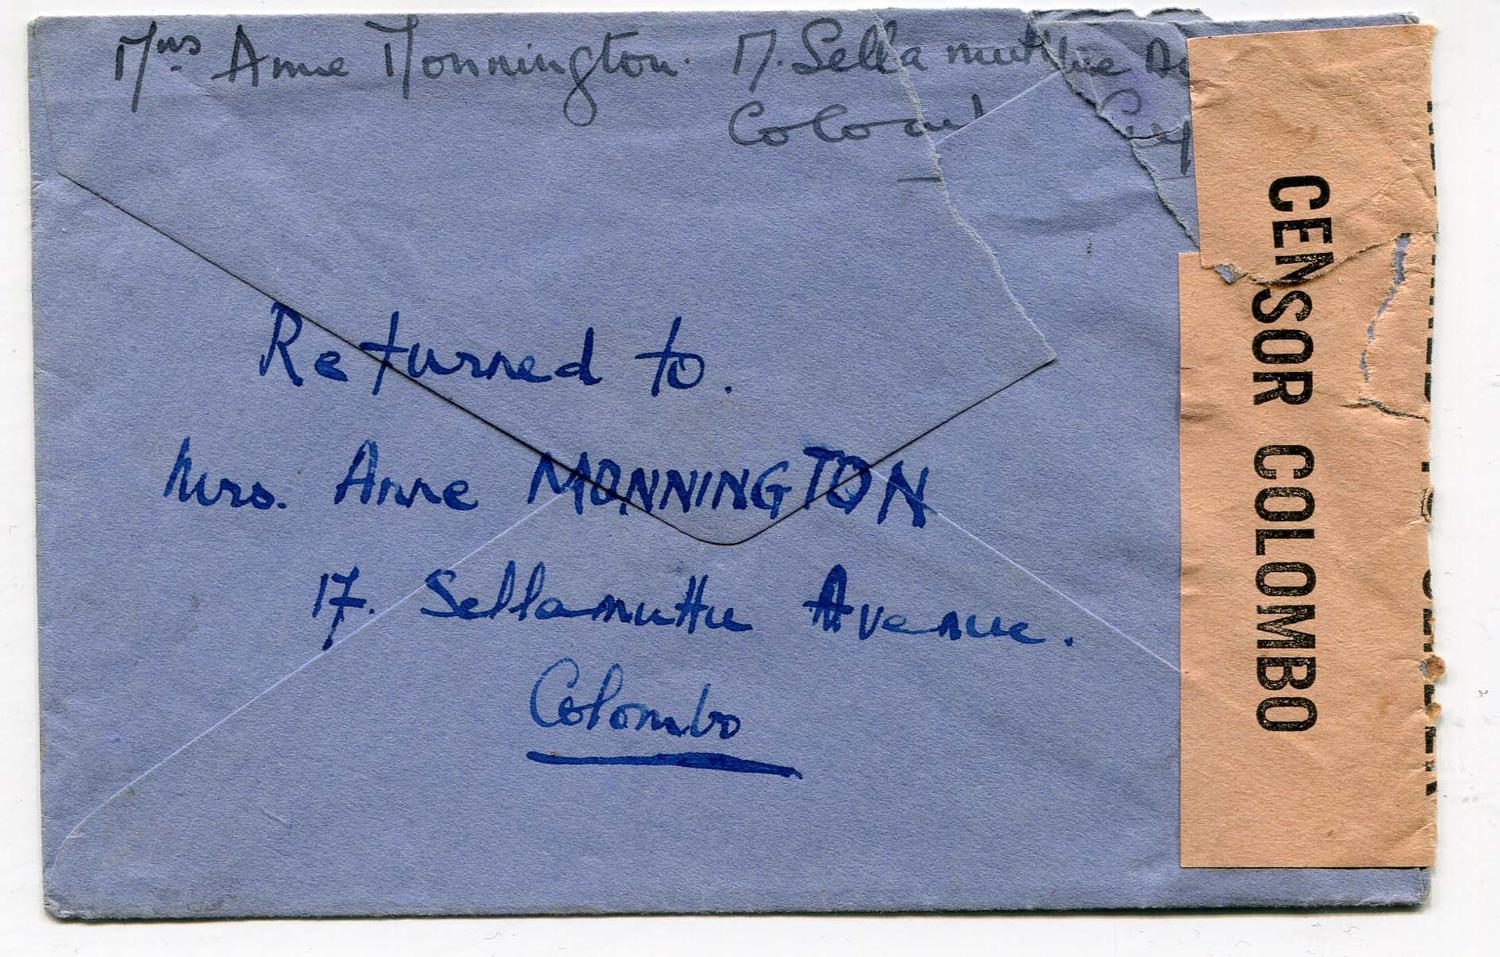 Mrs Anne Monnington. 17. Sellamuttu
Colom
Returned to.
Mrs. Anne MONNINGTON
17. Sellamuttu Avenue.
Colombo
CENSOR COLOMBO